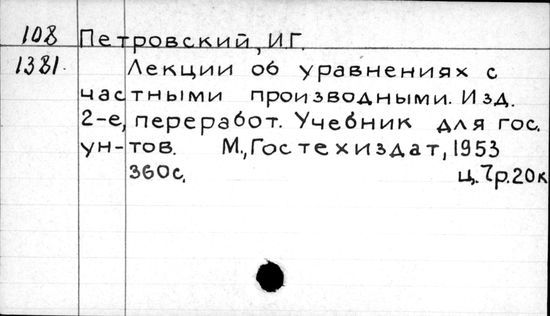 108 Петровский, И.Г.
1381. Лекции об уравнениях с
частными производными. Изд.
2-е, переработ. Учебник для гос.
ун-тов. М., Гостехиздат, 1953
360с. ц. 7р. 20к